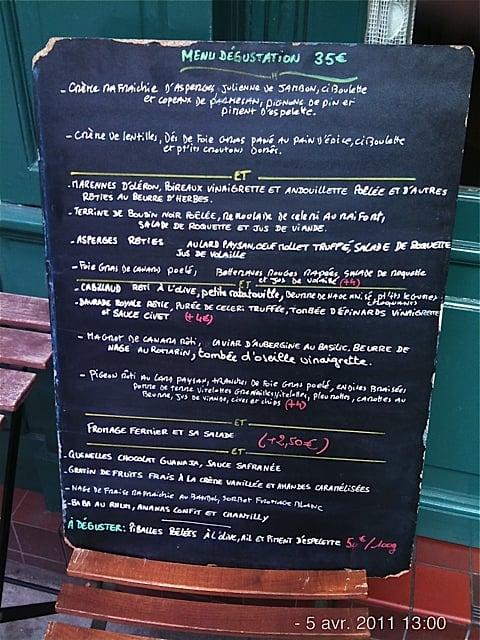 MENU DÉGUSTATION 35€
- Crème rafraichie d'Asperges, julienne de jambon, ciboulette
et copeaux de parmesan, pignons de pin et
piment d'espelette.
- Crème de lentilles, Dés de Foie Gras pané au pain d'épice, ciboulette
et p'tits croutons Dorés.
ET
- MARENNES D'OLÉRON, POIREAUX VINAIGRETTE ET ANDOUILLETTE POÊLÉE ET D'AUTRES
RÔTIES AU BEURRE D'HERBES.
- TERRINE DE BOUDIN NOIR POÊLÉE, REMOULADE DE CELERI AU RAIFORT,
SALADE DE ROQUETTE ET JUS DE VIANDE.
- ASPERGES RÔTIES AU LARD PAYSAN, OEUF MOLLET TRUFFÉ, SALADE DE ROQUETTE
JUS DE VOLAILLE
- Foie Gras de canard poelé, Betteraves rouges rapées, salade de roquette
et Jus de volaille (+4)
ET
- CABILLAUD RÔTI À L'OLIVE, petite ratatouille, BEURRE DE NAGE ANISÉ, p'tits legumes
croquants
- DAURADE ROYALE RÔTIE, PURÉE DE CELERI TRUFFÉE, TOMBÉE D'ÉPINARDS VINAIGRETTE
et SAUCE CIVET (+4€)
- MAGRET DE CANARD RÔTI, CAVIAR D'AUBERGINE AU BASILIC, BEURRE DE
NAGE AU ROMARIN, tombée d'oseille vinaigrette.
- PIGEON RÔTI AU LARD PAYSAN, tranches de foie gras poelé, endives braisées
pomme de terre vitelottes, pleurottes, carottes au
Beurre, jus de viande, cives et chips (+4)
ET
FROMAGE FERMIER ET SA SALADE (+2,50€)
ET
- QUENELLES CHOCOLAT GUANAJA, SAUCE SAFRANÉE
- GRATIN DE FRUITS FRAIS À LA CRÈME VANILLÉE ET AMANDES CARAMÉLISÉES
- NAGE DE FRAISE RAFRAICHIE AU BANDOL, SORBET FROMAGE BLANC
- BABA AU RHUM, ANANAS CONFIT ET CHANTILLY
À DÉGUSTER: PIBALLES POÊLÉES À L'OLIVE, AIL ET PIMENT D'ESPELETTE 50€/100g
- 5 avr. 2011 13:00